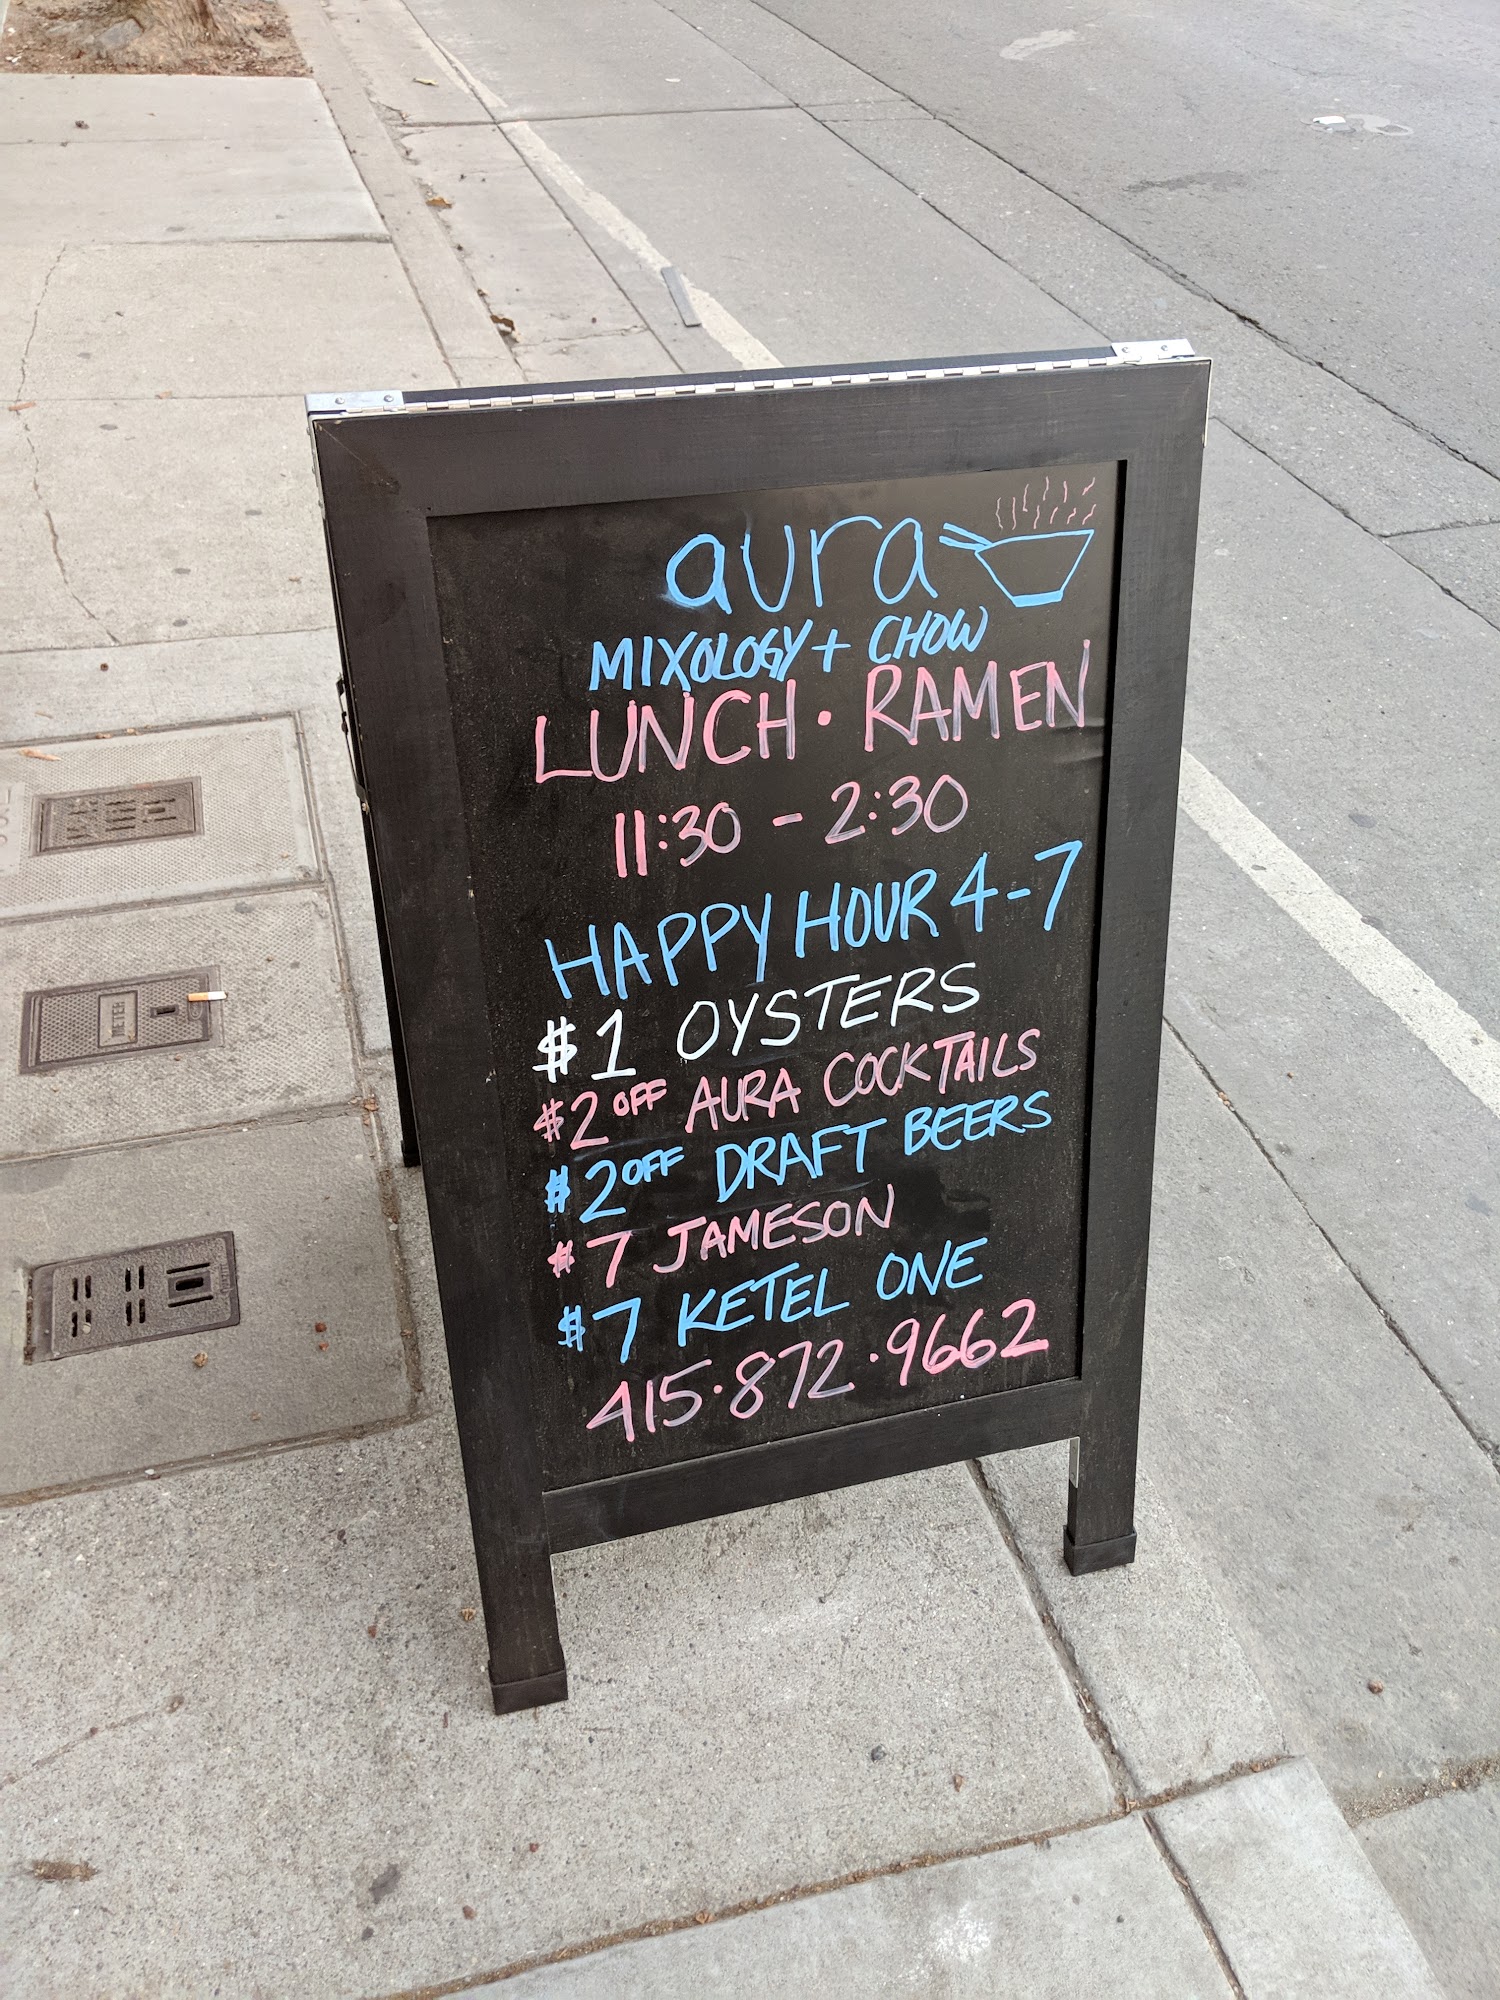 aura
MIXOLOGY + CHOW
LUNCH · RAMEN
11:30 - 2:30
HAPPY HOUR 4-7
$1 OYSTERS
$2 OFF AURA COCKTAILS
$2 OFF DRAFT BEERS
$7 JAMESON
$7 KETEL ONE
415·872·9662
METER